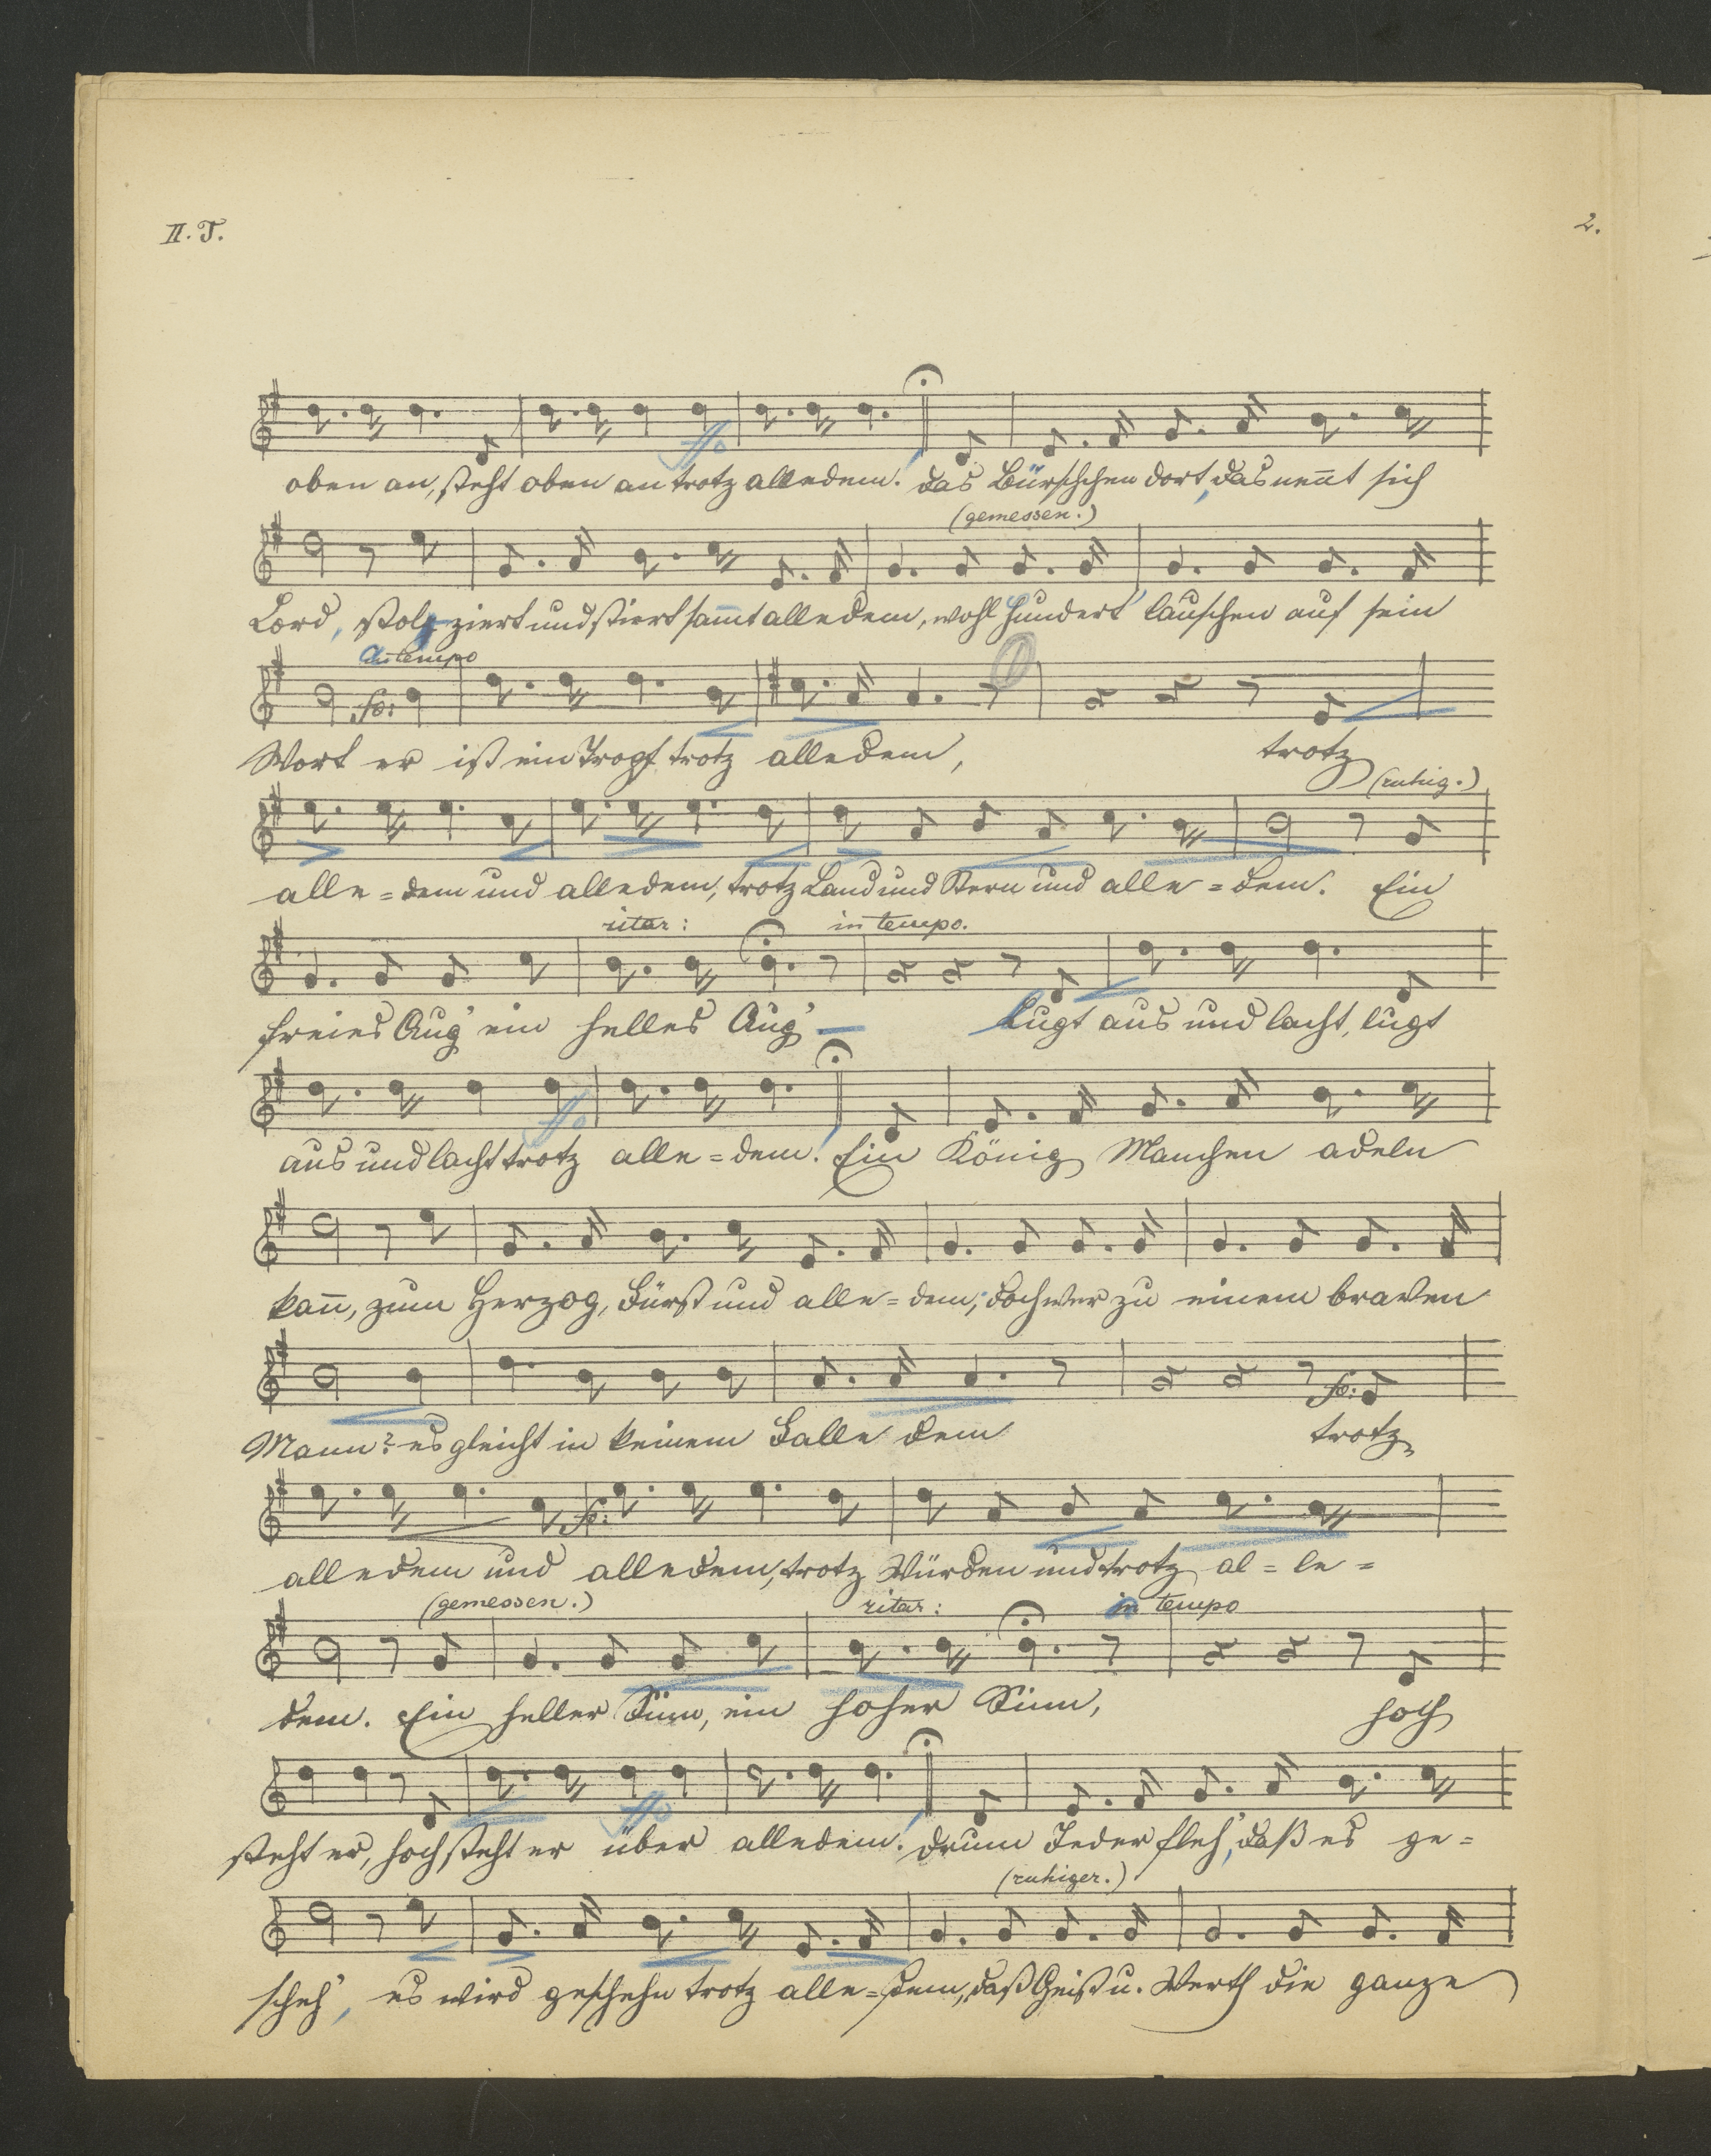 II. T.
2.
oben an, steht oben an trotz alledem! das Bürschchen dort, das nen̄t sich
(gemessen.)
Lord, stolzziert und stiert sam̄t alledem, wohl hundert lauschen auf sein
in tempo
fo:
Wort er ist ein Tropf trotz alledem, trotz
(ruhig.)
alle=dem und alledem, trotz Band und Stern und alle=dem. Ein
ritar: in tempo.
freies Aug' ein helles Aug' Lugt aus und lacht, lugt
ffo
aus und lacht trotz alle=dem! Ein König Manchen adeln
kan̄, zum Herzog, Fürst und alle=dem; doch wer zu einem braven
fo:
Mann? es gleicht in keinem Falle dem trotz
fo:
alledem und alledem, trotz Würden und trotz al=le=
(gemessen.) ritar: in tempo
dem. Ein heller Sinn, ein hoher Sinn, hoch
ffo
steht er, hoch steht er über alledem! drum Jeder fleh', daß es ge=
(ruhiger.)
scheh', es wird geschehn trotz alle=dem, daß Geist u. Werth die ganze